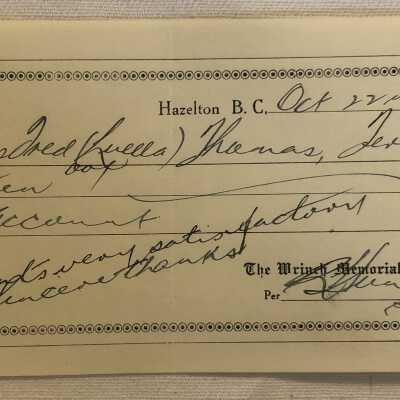 Hazelton B. C. Oct 22
Fred (Luella) Thomas,
en Cox
ccount
very satisfactory
sincere thanks
The Wrinch Memorial
Per